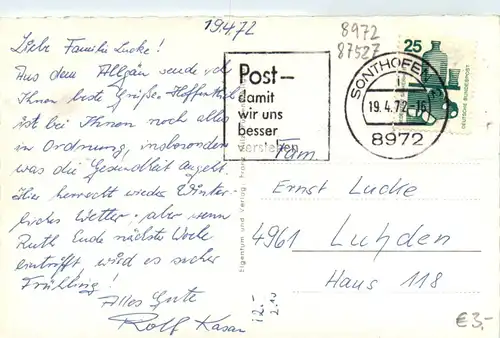 19.4.72
8972
87527
Liebe Familie Lucke!
Aus dem Allgäu sende ich
Ihnen beste Grüße. Hoffentlich
ist bei Ihnen noch alles
in Ordnung, insbesonders
was die Gesundheit angeht.
Hier herrscht wieder Winter-
liches Wetter - aber wenn
Ruth Ende nächste Woche
eintrifft wird es sicher
Frühling!
Alles Gute
Rolf
Post-
damit
wir uns
besser
verstehen
SONTHOFEN
19.4.72-16
8972
25
DEUTSCHE BUNDESPOST
Eigentum und Verlag:
Fam.
Ernst Lucke
4961 Luhden
Haus 118
€3.-